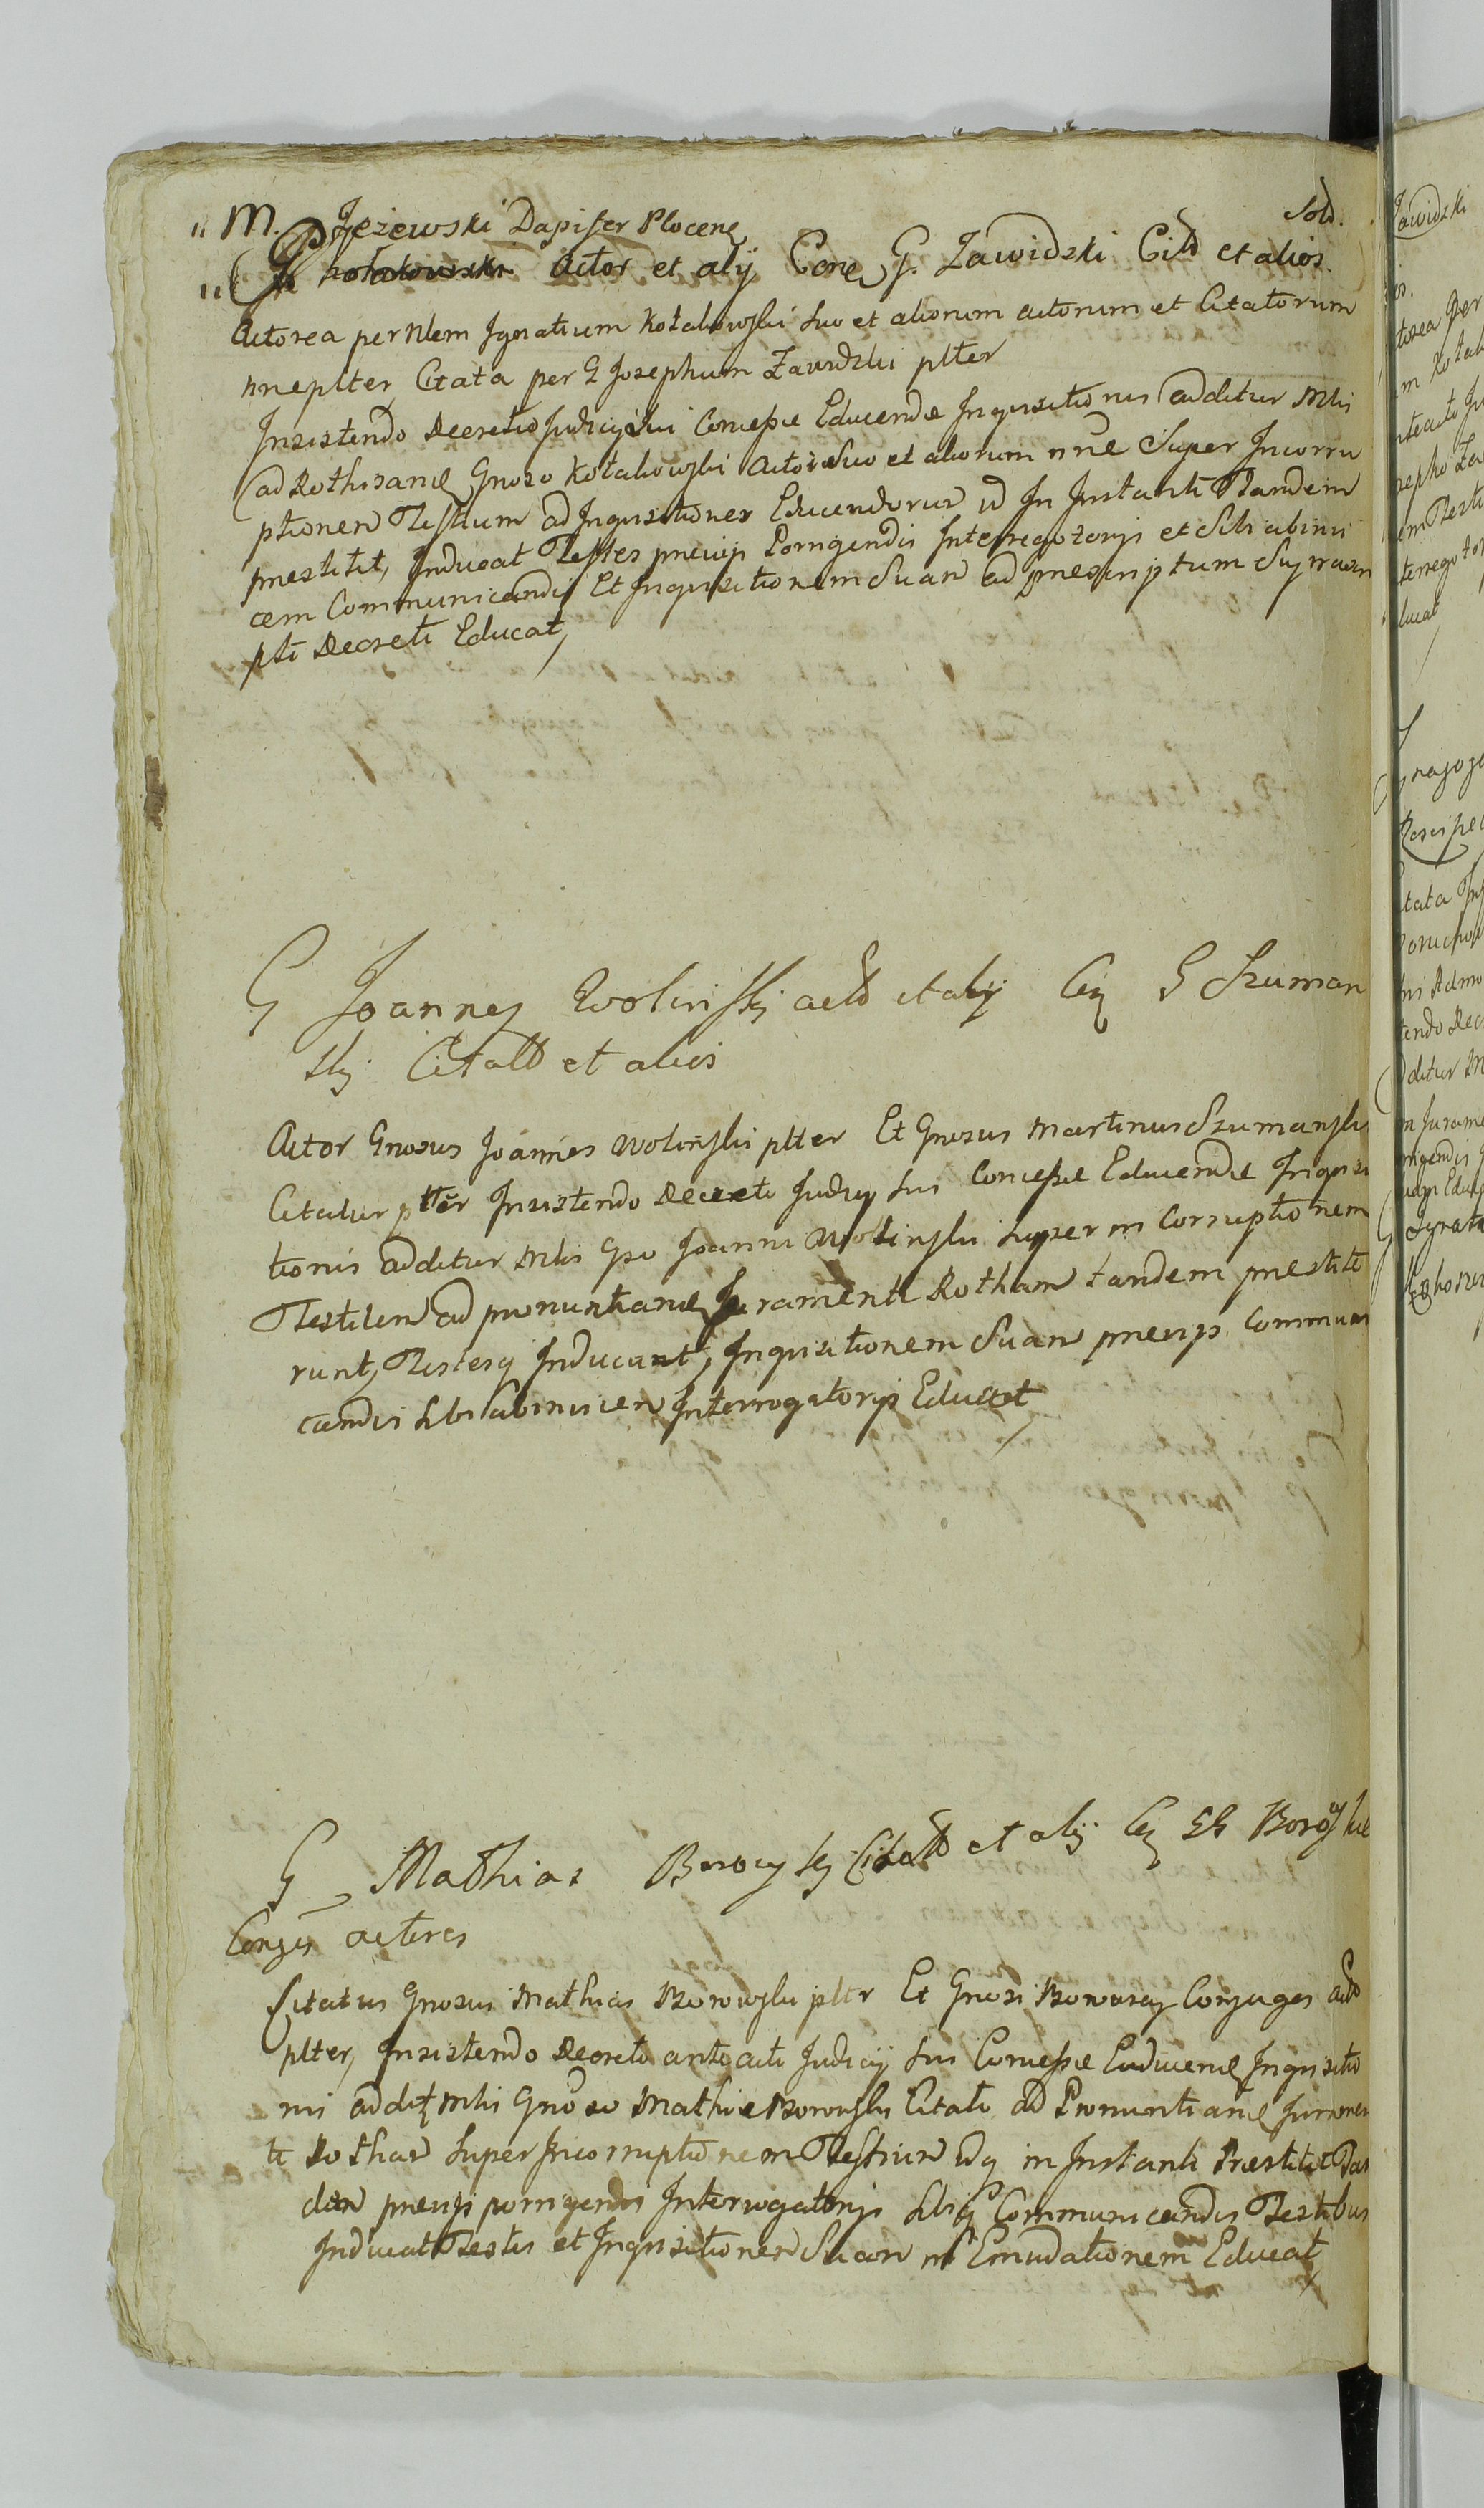 " M. Jeżewski Dapifer Plocen
Sold.
" G Kołakowski Actor et alij Cone G. Zawidzki Citt et alios.
Actorea per Nlem Ignatium Kołakowski suo et aliorum actorum et Citatorum
nneplter, Citata per G Josephum Zawidzki plter
Insistendo Decreto Judicij Sui Concessæ Educendæ Inquisitionis additur Mlis
ad Rothisand Gnoso Kołakowski Actori Suo et aliorum nne Super Incorru
ptionem Testium ad Inquisitiones Educendorum id In Instanti Tandem
prestitit, Inducat Testes previjs Porrigendis Interrogatorijs et Sibi abinvi
cem Communicandis Et Inquisitionem Suam ad prescriptum Suprascri
pti Decreti Educat,
G Joannes Wolinski actt et alij Cij G Szuman
skj Citatt et alios
Actor Gnosus Joannes Wolinski plter Et Gnosus Martinus Szumanski
Citatur plter Insistendo Decreto Judicij sui Concessæ Educendæ Inquisi
tionis additur Mlis Gso Joanni Wolinski super in Corruptionem
Testium ad pronuntiand Juramenti Rotham tandem prestite
runt, Testesq Inducant, Inquisitionem Suam previjs Communi
candis sibi abinvicem Interrogatorijs Educat
G Mathias Borowskj Citatt et alij Cij GG Borowskie
Conges actores
Citatus Gnosus Mathias Borowski pltr Et Gnosi Borowscy Conjuges actt
plter, Insistendo Decreto anteacti Judicij sui Concessæ Educend Inquisitio
ni addit Mlis Gnoso Mathiæ Borowski Citati ad Pronuntiand Juramen
ti Rotham super Incorruptionem Testium idq in Instanti Prestitit Tan
dem previjs porrigendis Interrogatorijs sibiq Communicandis Testibus
Inducat Testes et Inquisitionem Suam in Emudationem Educat